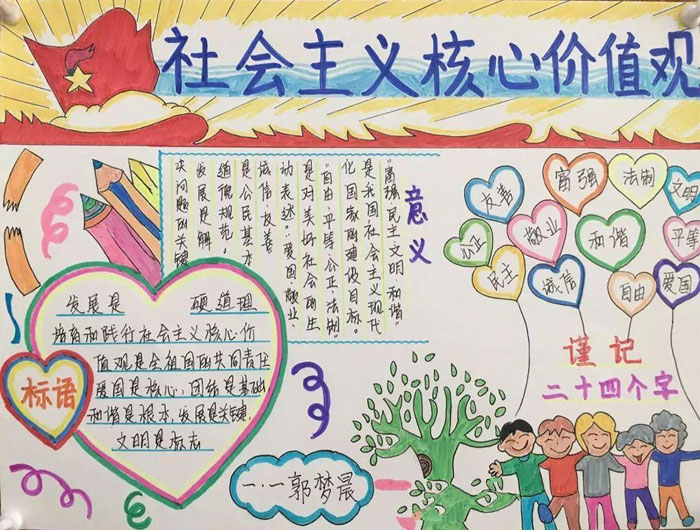 社会主义核心价值观
意义
"富强、民主、文明、和谐"
是我国社会主义现代
化国家的建设目标。
"自由、平等、公正、法制"
是对美好社会的生
动表述。爱国、敬业
诚信、友善
是公民基本
道德规范,
发展是解
决问题的关键
友善
富强
法制
文明
公正
敬业
和谐
平等
民主
诚信
自由
爱国
标语
发展是 硬道理
培育和践行社会主义核心价
值观是全祖国的共同责任
爱国是核心,团结是基础
和谐是根本,发展是关键,
文明是标志
谨记
二十四个字
一·一郭梦晨